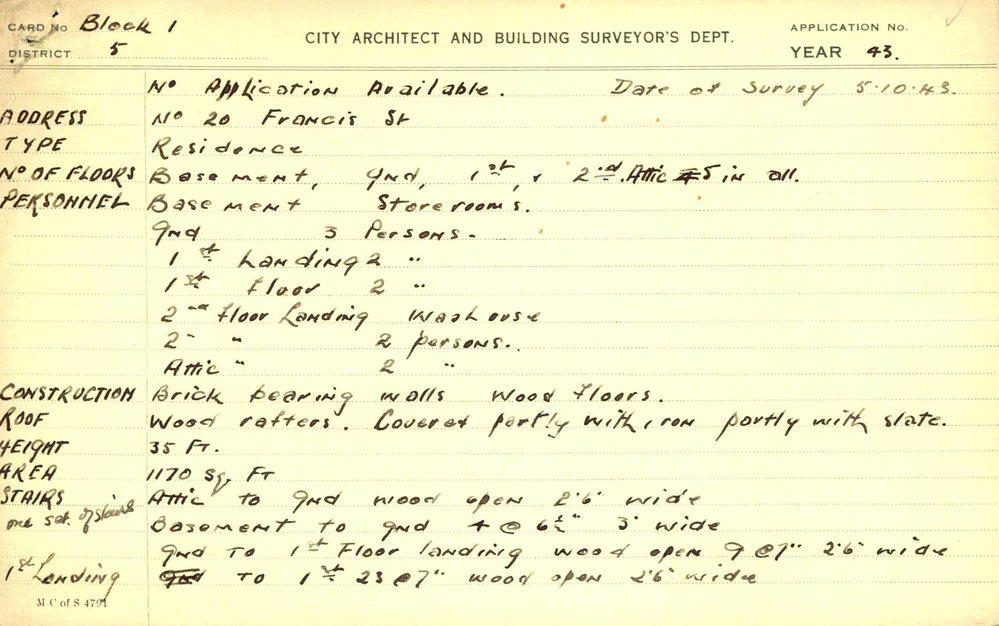 CARD No Block 1
DISTRICT 5
CITY ARCHITECT AND BUILDING SURVEYOR'S DEPT.
APPLICATION No.
YEAR 43.
No Application Available. Date of Survey 5.10.43.
ADDRESS No 20 Francis St
TYPE Residence
No OF FLOORS Basement, Gnd, 1st, & 2nd. Attic 5 in all.
PERSONNEL Basement Storerooms.
Gnd 3 Persons.
1st Landing 2 "
1st Floor 2 "
2nd Floor Landing Washouse
2" " 2 persons.
Attic " 2 "
CONSTRUCTION Brick bearing walls Wood floors.
ROOF Wood rafters. Covered partly with iron partly with slate.
HEIGHT 35 Ft.
AREA 1170 Sq. Ft
STAIRS Attic to Gnd wood open 2'6" wide
one set of stairs Basement to Gnd 4 @ 6½" 3' wide
Gnd To 1st Floor landing wood open 9 @ 7" 2'6" wide
1st Landing Gnd To 1st 23 @ 7" wood open 2'6" wide
M C of S 4791